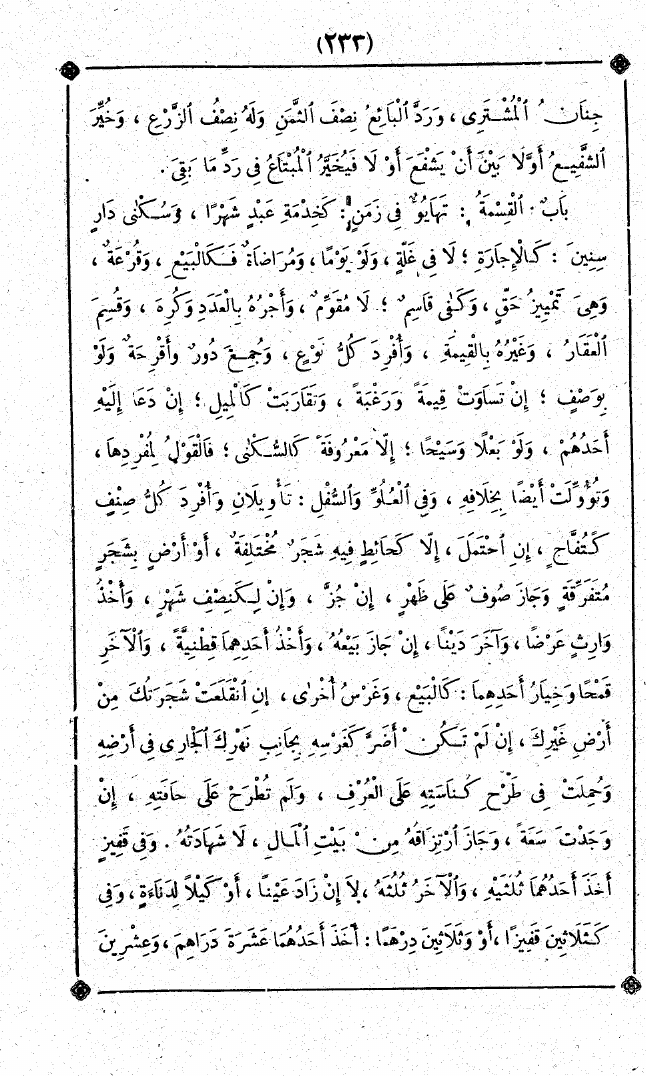 (٢٣٣)
جِنَانُ ٱلْمُشْتَرِى ، وَرَدَّ ٱلْبَائِعُ نِصْفَ الثَّمَنِ وَلَهُ نِصْفُ الزَّرْعِ ، وَخُيِّرَ
الشَّفِيعُ أَوَّلًا بَيْنَ أَنْ يَشْفَعَ أَوْ لَا فَيُخَيَّرُ ٱلْمُبْتَاعُ فِى رَدِّ مَا بَقِىَ .
بَابٌ : ٱلْقِسْمَةُ : تَهَايُؤٌ فِى زَمَنٍ : كَخِدْمَةِ عَبْدٍ شَهْرًا ، وَسُكْنَى دَارٍ
سِنِينَ : كَالْإِجَارَةِ ؛ لَا فِى غَلَّةٍ ، وَلَوْ يَوْمًا ، وَمُرَاضَاةٌ فَكَالْبَيْعِ ، وَقُرْعَةٌ ،
وَهِىَ تَمْيِيزُ حَقٍّ ، وَكَفَى قَاسِمٌ ؛ لَا مُقَوِّمٌ ، وَأَجْرُهُ بِالْعَدَدِ وَكُرِهَ ، وَقُسِمَ
ٱلْعَقَارُ ، وَغَيْرُهُ بِالْقِيمَةِ ، وَأُفْرِدَ كُلُّ نَوْعٍ ، وَجُمِعَ دُورٌ وَأَقْرِحَةٌ وَلَوْ
بِوَصْفٍ ؛ إِنْ تَسَاوَتْ قِيمَةً وَرَغْبَةً ، وَتَقَارَبَتْ كَالْمِيلِ ؛ إِنْ دَعَا إِلَيْهِ
أَحَدُهُمْ ، وَلَوْ بَعْلًا وَسَيْحًا ؛ إِلَّا مَعْرُوفَةً كَالسُّكْنَى ؛ فَالْقَوْلُ لِمُفْرِدِهَا ،
وَتُؤُوِّلَتْ أَيْضًا بِخِلَافِهِ ، وَفِى ٱلْعُلُوِّ وَٱلسُّفْلِ : تَأْوِيلَانِ وَأُفْرِدَ كُلُّ صِنْفٍ
كَتُفَّاحٍ ، إِنِ ٱحْتَمَلَ ، إِلَّا كَحَائِطٍ فِيهِ شَجَرٌ مُخْتَلِفَةٌ ، أَوْ أَرْضٍ بِشَجَرٍ
مُتَفَرِّقَةٍ وَجَازَ صُوفٌ عَلَى ظَهْرٍ ، إِنْ جُزَّ ، وَإِنْ لِكَنِصْفِ شَهْرٍ ، وَأَخْذُ
وَارِثٍ عَرْضًا ، وَآخَرَ دَيْنًا ، إِنْ جَازَ بَيْعُهُ ، وَأَخْذُ أَحَدِهِمَا قِطْنِيَّةً ، وَٱلْآخَرِ
قَمْحًا وَخِيَارُ أَحَدِهِمَا : كَالْبَيْعِ ، وَغَرْسُ أُخْرَى ، إِنِ ٱنْقَلَعَتْ شَجَرَتُكَ مِنْ
أَرْضِ غَيْرِكَ ، إِنْ لَمْ تَكُنْ أَضَرَّ كَغَرْسِهِ بِجَانِبِ نَهْرِكَ ٱلْجَارِى فِى أَرْضِهِ
وَحُمِلَتْ فِى طَرْحِ كُنَاسَتِهِ عَلَى ٱلْعُرْفِ ، وَلَم تُطْرَحْ عَلَى حَافَتِهِ ، إِنْ
وَجَدْتَ سَعَةً ، وَجَازَ ٱرْتِزَاقُهُ مِنْ بَيْتِ ٱلْمَالِ ، لَا شَهَادَتُهُ . وَفِى قَفِيزٍ
أَخَذَ أَحَدُهُمَا ثُلُثَيْهِ ، وَٱلْآخَرُ ثُلُثَهُ ، لَا إِنْ زَادَ عَيْنًا ، أَوْ كَيْلًا لِدَنَاءَةٍ ، وَفِى
كَثَلَاثِينَ قَفِيزًا ، أَوْ وَثَلَاثِينَ دِرْهَمًا : أَخَذَ أَحَدُهُمَا عَشَرَةَ دَرَاهِمَ ، وَعِشْرِينَ